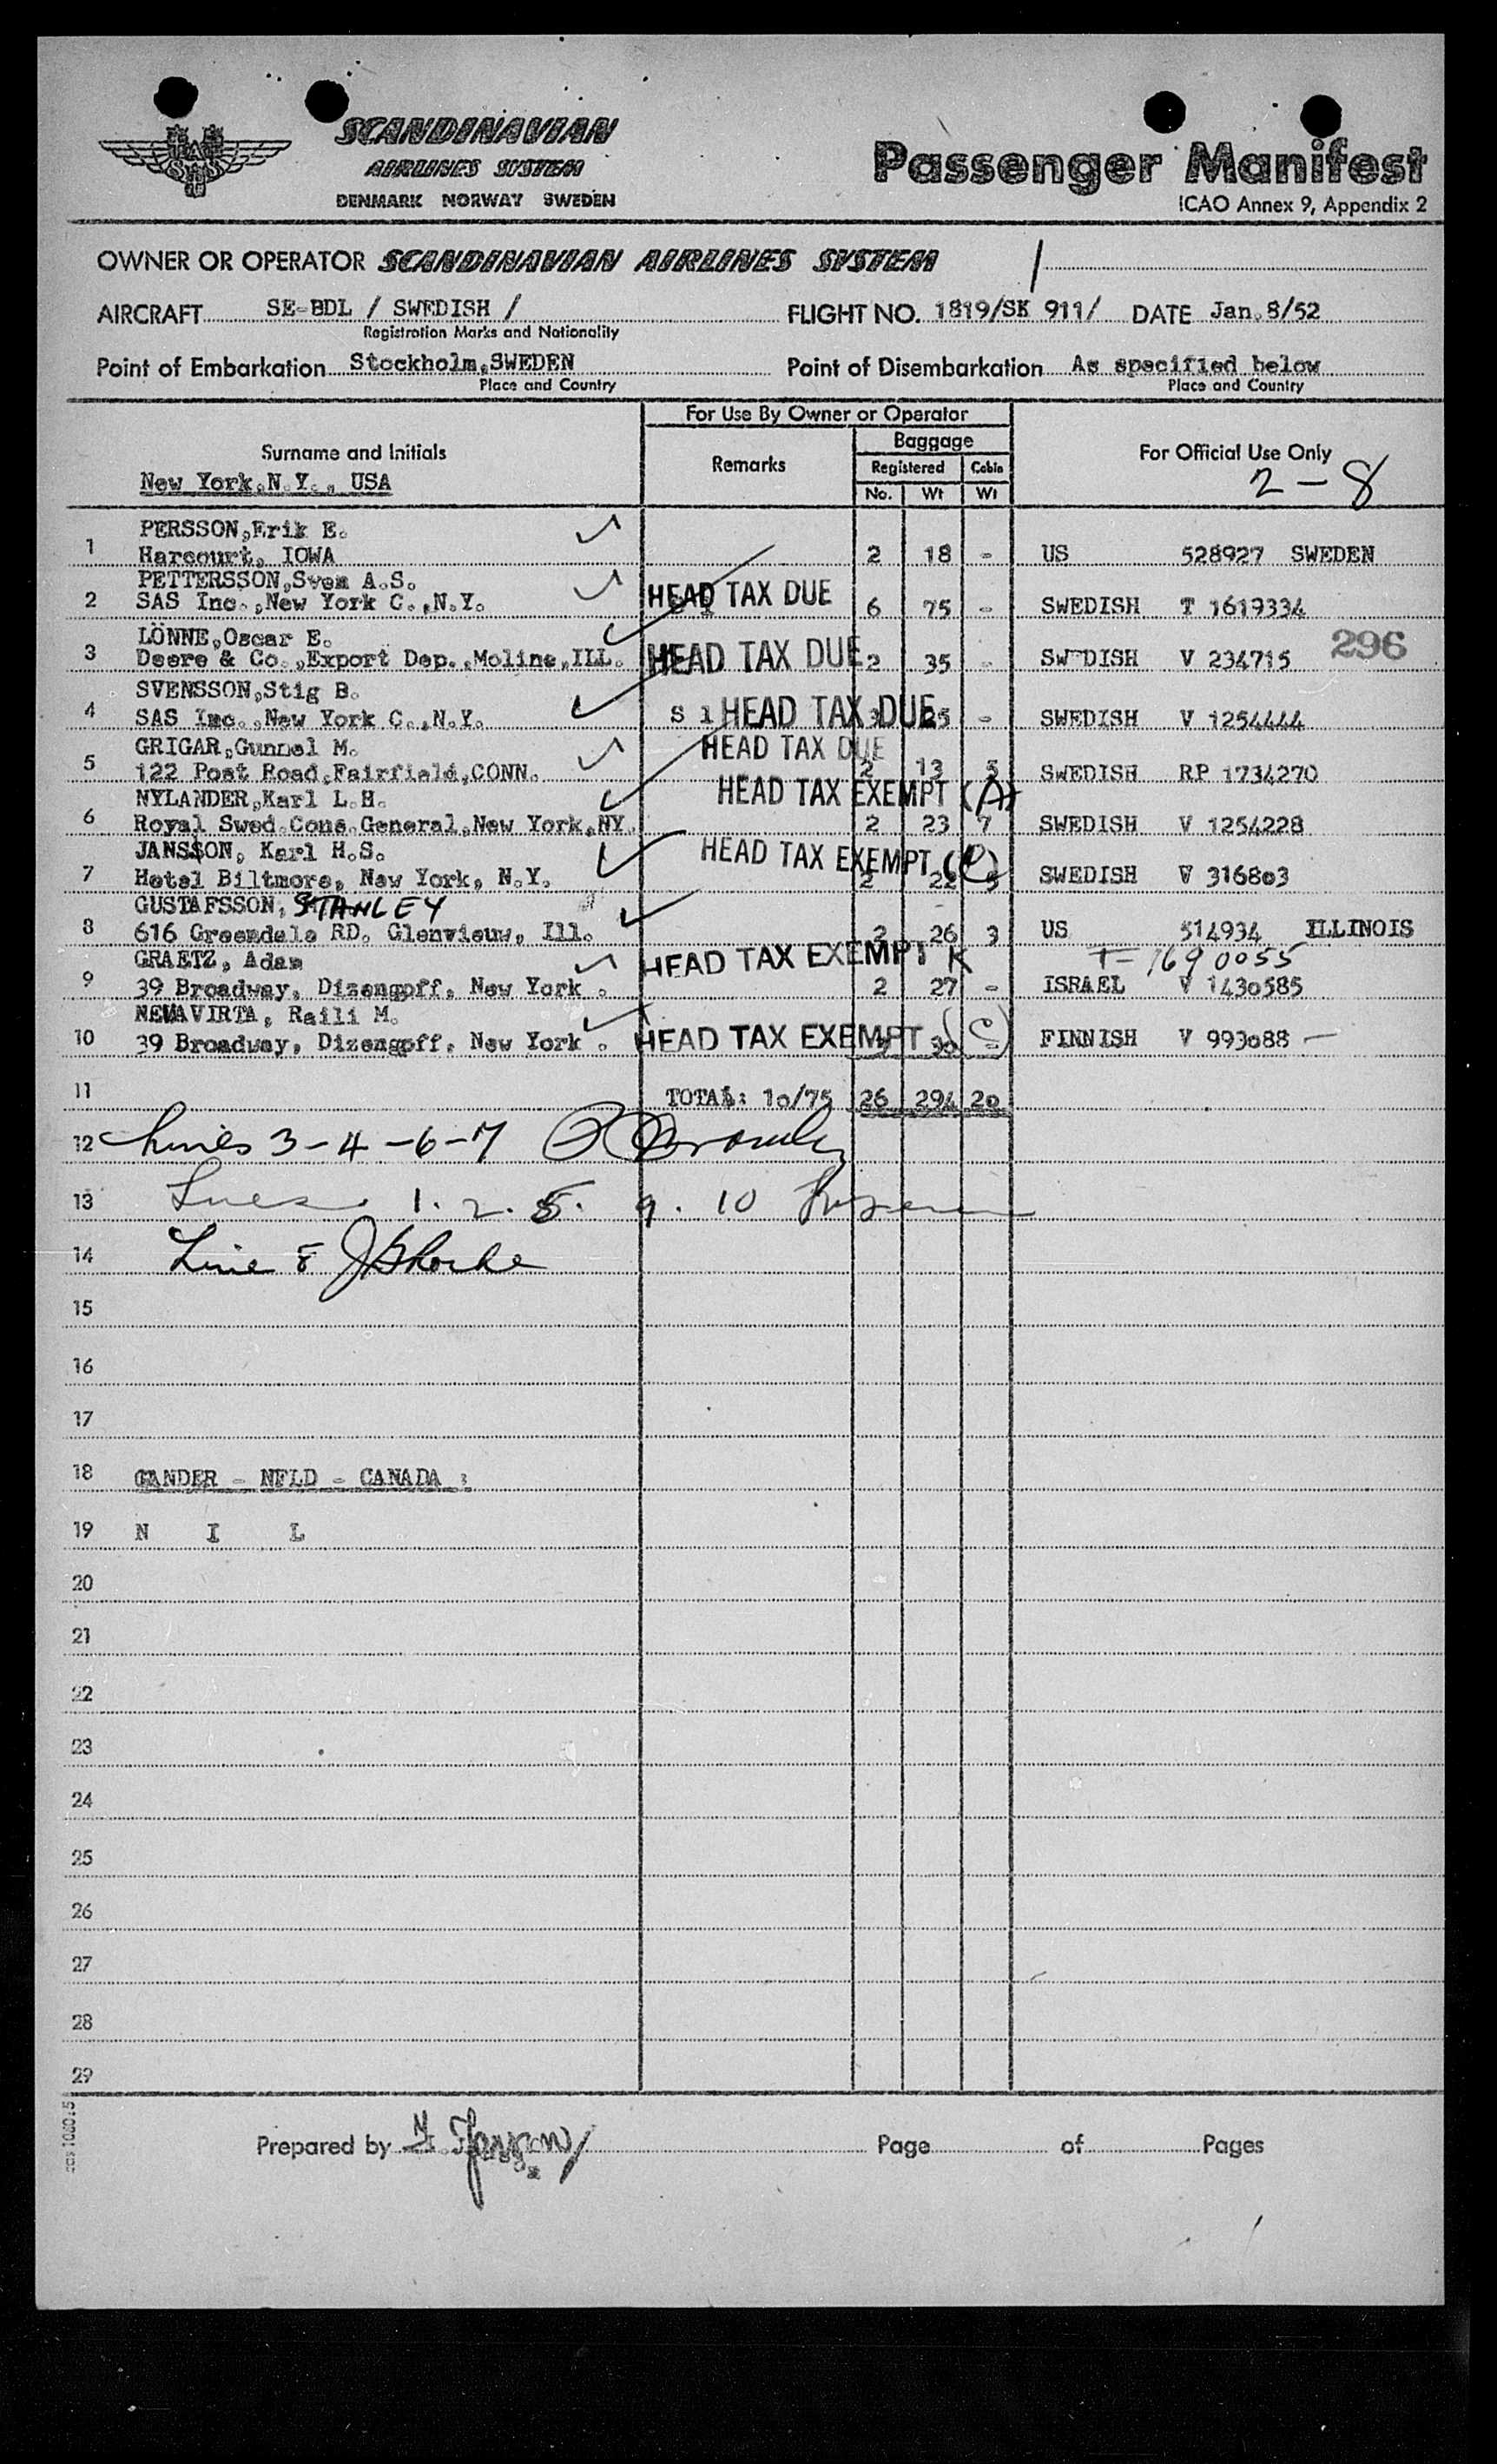 SCANDINAVIAN
AIRLINES SYSTEM
DENMARK NORWAY SWEDEN
Passenger Manifest
ICAO Annex 9, Appendix 2
OWNER OR OPERATOR SCANDINAVIAN AIRLINES SYSTEM
AIRCRAFT SE-BDL / SWEDISH / FLIGHT NO. 1819/SK 911/ DATE Jan.8/52
Registration Marks and Nationality
Point of Embarkation Stockholm,SWEDEN Point of Disembarkation As specified below
Place and Country Place and Country
For Use By Owner or Operator
Surname and Initials Remarks Baggage For Official Use Only
Registered Cabin
New York,N.Y., USA No. Wt Wt 2-8
PERSSON,Erik E.
1 Harcourt, IOWA 2 18 - US 528927 SWEDEN
PETTERSSON,Sven A.S.
2 SAS Inc.,New York C.,N.Y. HEAD TAX DUE 6 75 - SWEDISH T 1619334
LÖNNE,Oscar E.
3 Deere & Co.,Export Dep.,Moline,ILL. HEAD TAX DUE 2 35 - SW DISH V 234715 296
SVENSSON,Stig B.
4 SAS Inc.,New York C.,N.Y. S 1 HEAD TAX DUE 3 25 - SWEDISH V 1254444
GRIGAR,Gunnel M. HEAD TAX DUE
5 122 Post Road,Fairfield,CONN. 2 13 5 SWEDISH RP 1734270
NYLANDER,Karl L.H. HEAD TAX EXEMPT (A)
6 Royal Swed.Cons.General,New York,NY. 2 23 7 SWEDISH V 1254228
JANSSON, Karl H.S. HEAD TAX EXEMPT
7 Hotel Biltmore, New York, N.Y. 2 22 5 SWEDISH V 316803
GUSTAFSSON, STANLEY
8 616 Greendale RD. Glenvieuw, Ill. 2 26 3 US 514934 ILLINOIS
GRAETZ, Adam HEAD TAX EXEMPT K T-1690055
9 39 Broadway, Dizengoff, New York . 2 27 - ISRAEL V 1430585
NEVAVIRTA, Raili M.
10 39 Broadway, Dizengoff, New York . HEAD TAX EXEMPT (C) 3 30 - FINNISH V 993088 -
11 TOTAL: 10/75 26 294 20
12 Lines 3-4-6-7
13 Lines 1. 2. 5. 9. 10
14 Line 8
15
16
17
18 GANDER - NFLD - CANADA :
19 N I L
20
21
22
23
24
25
26
27
28
29
Prepared by Page of Pages